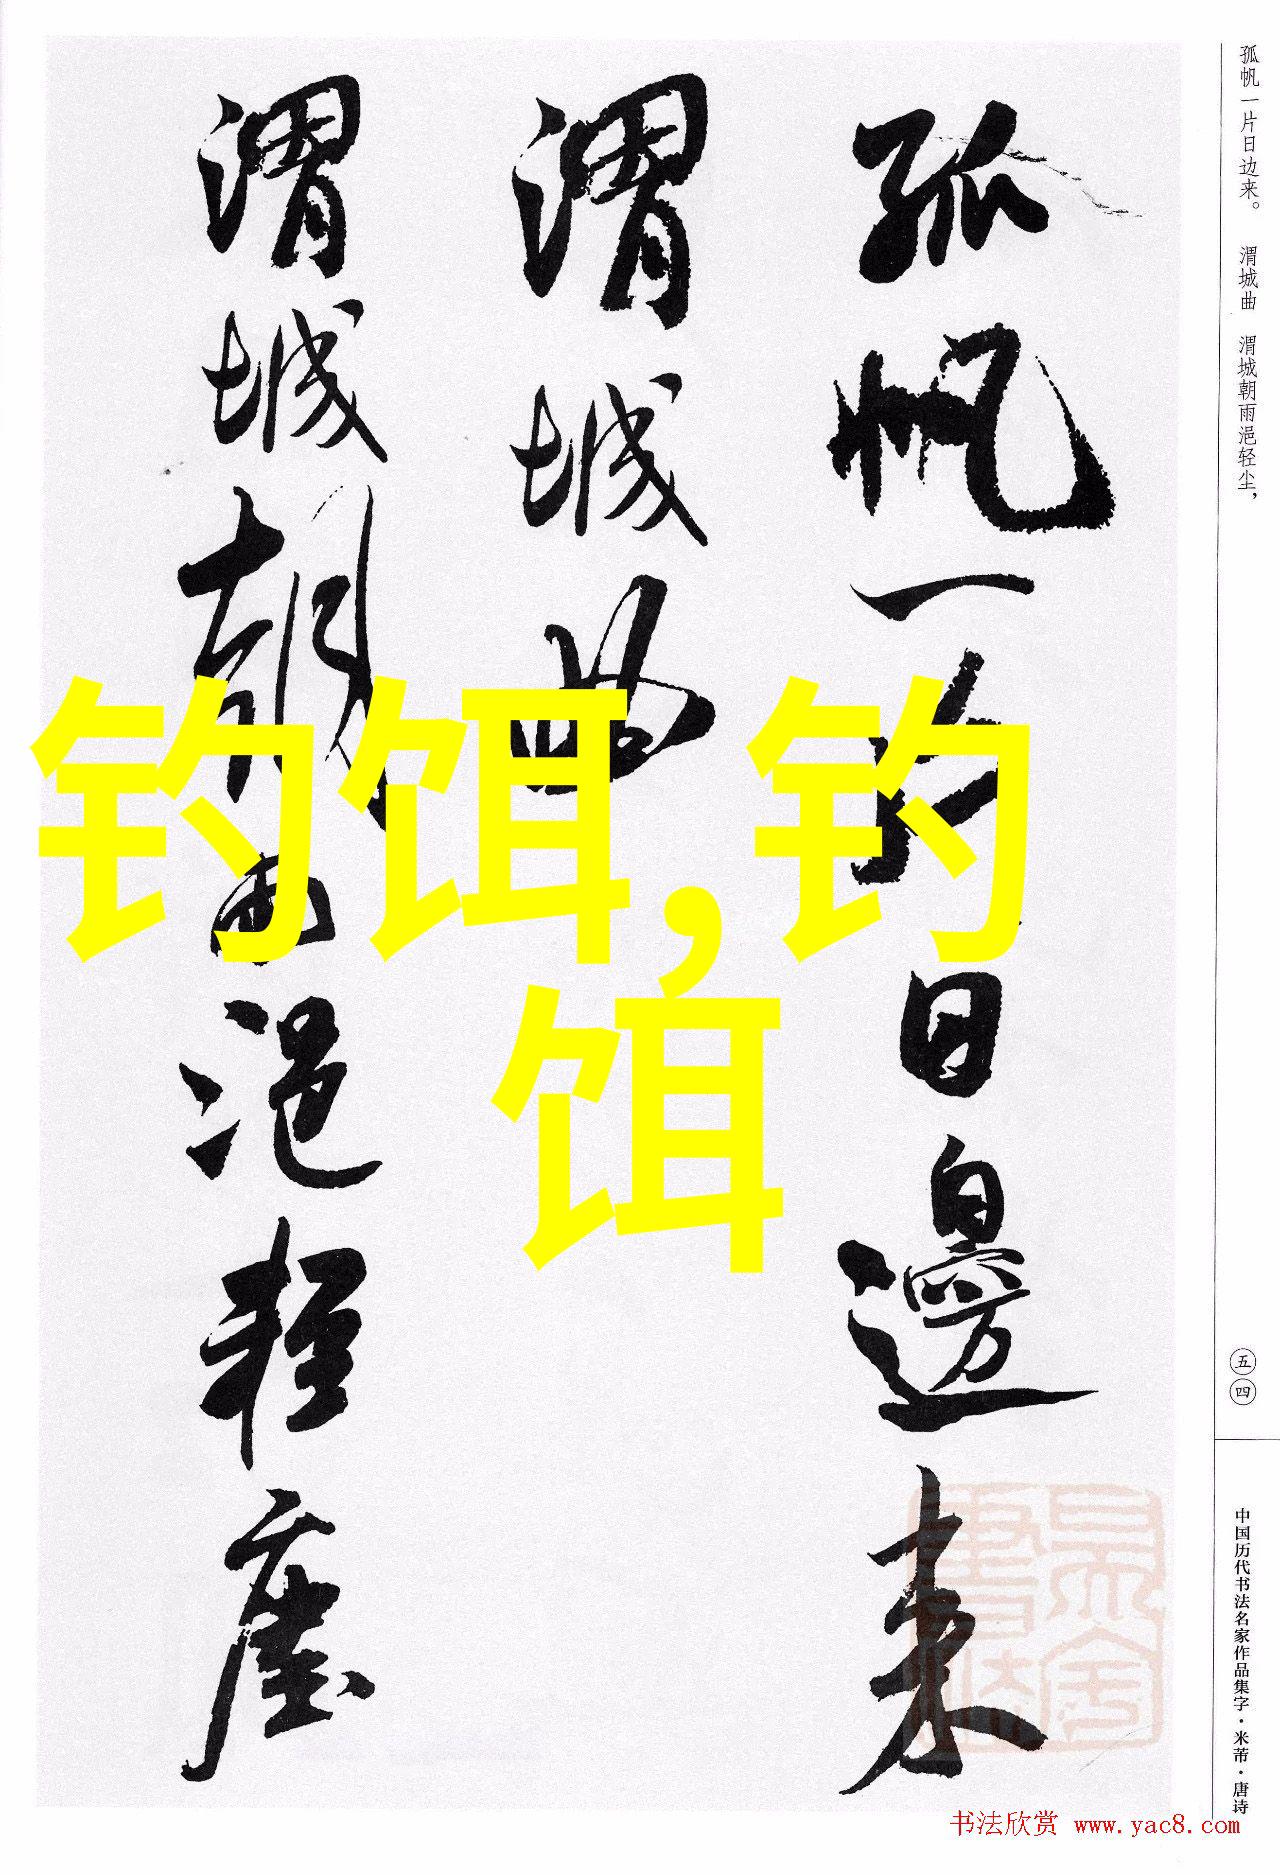 孤帆一片日邊来
渭城曲
渭城朝雨浥轻塵
孤帆一片日边来。 渭城曲 渭城朝雨浥轻尘，
五四
中国历代书法名家作品集字·米芾·唐诗
钓饵,钓
饵
书法欣赏 www.yac8.com